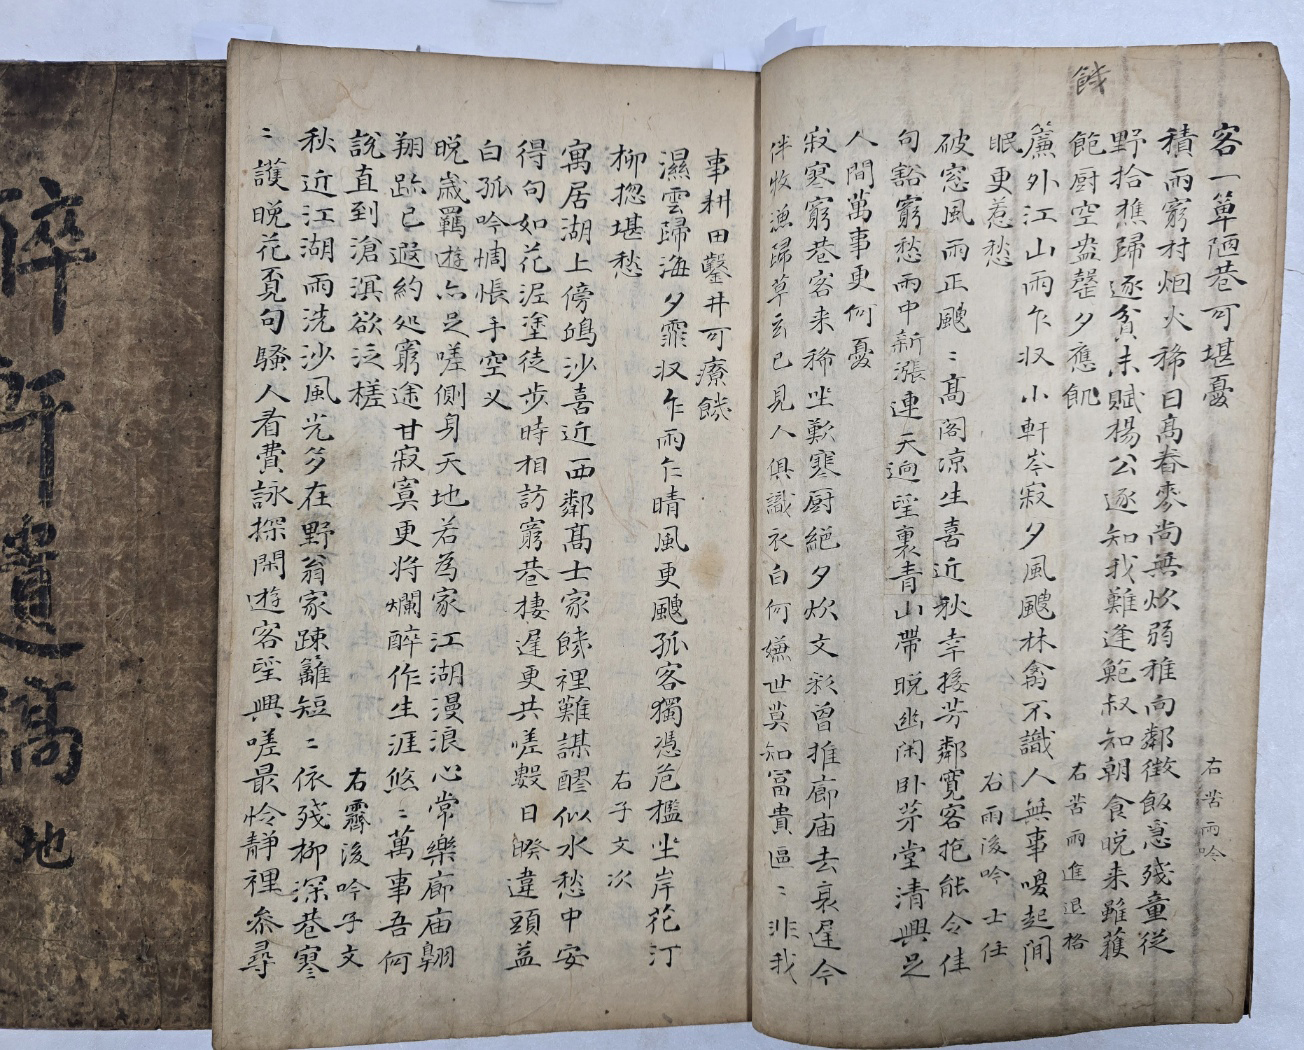 餞
客一簞陋巷可堪憂
右苦雨吟
積雨窮村烟火稀日高舂麥尙無炊弱稚向鄰徵飯意殘童從
野拾樵歸逐貧未賦楊公逐知我難逢鮑叔知朝食晩来雖蕿
飽厨空盎罄夕應飢
右苦雨進退格
簾外江山雨乍収小軒岑寂夕風颼林禽不識人無事嗄起閒
眠更惹愁
右雨後吟士任
破窓風雨正颼〻高閣凉生喜近秋幸接芳鄰寛客抱能令佳
句豁窮愁雨中新漲連天逈望裏青山帶晩幽闲卧茅堂清興足
人間萬事更何憂
寂寒窮巷客来稀坐歎寒厨絕夕炊文彩曾推廊庙去衰遅今
伴牧漁歸草玄已見人俱識衣白何嫌世莫知冨貴區〻非我
事耕田鑿井可療饑
濕雲歸海夕霏収乍雨乍晴風更颼孤客獨憑危檻坐岸花汀
柳揔堪愁
右子文次
寓居湖上傍鴎沙喜近西鄰髙士家餘裡難謀醪似水愁中安
得句如花泥塗徒步時相訪窮巷棲遅更共嗟數日暌違頭益
白孤吟惆悵手空乂
晩歲羈遊亦足嗟側身天地若為家江湖漫浪心常樂廊庙翺
翔跡已遐約处窮途甘寂寞更将爛醉作生涯悠〻萬事吾何
說直到滄溟欲泛槎
右霽後吟子文
秋近江湖雨洗沙風光多在野翁家疎籬短〻依殘柳深巷寒
〻護晩花覔句騷人看費詠探閑遊客望興嗟最怜靜裡叅尋
醉軒遺稿
地